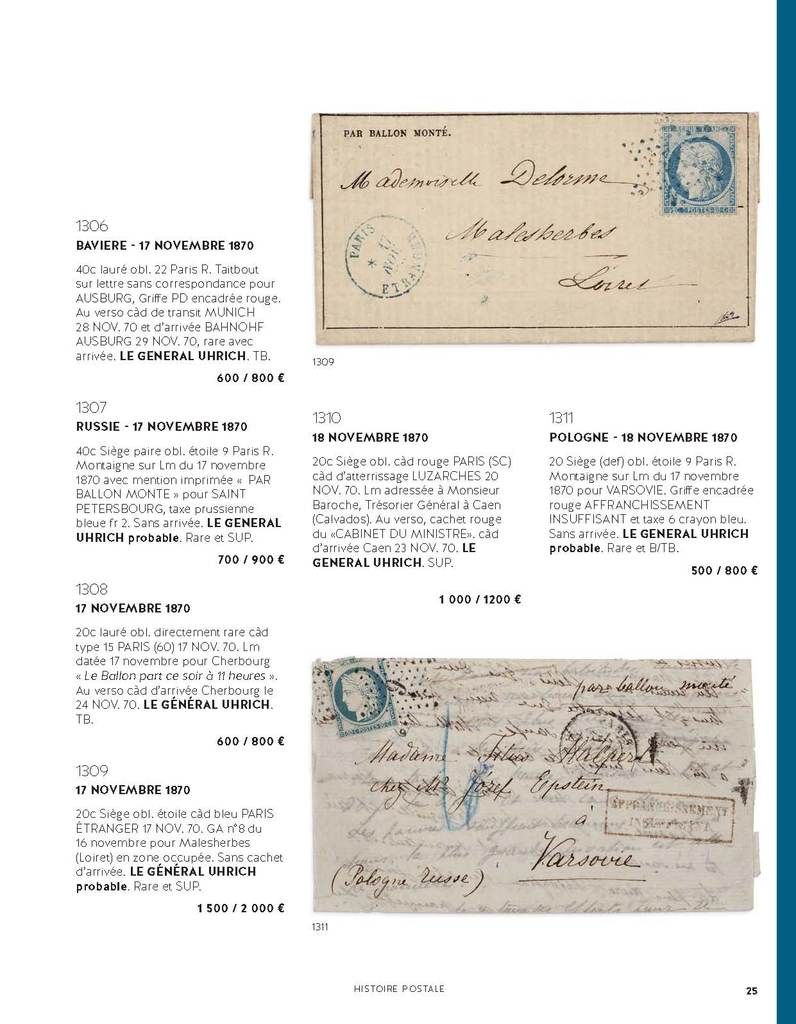 PAR BALLON MONTÉ.
Mademoiselle Delorme
Malesherbes
Loiret
PARIS
17
NOV
ETRANGER
1309
1306
BAVIERE - 17 NOVEMBRE 1870
40c lauré obl. 22 Paris R. Taitbout
sur lettre sans correspondance pour
AUSBURG, Griffe PD encadrée rouge.
Au verso càd de transit MUNICH
28 NOV. 70 et d'arrivée BAHNOHF
AUSBURG 29 NOV. 70, rare avec
arrivée. LE GENERAL UHRICH. TB.
600 / 800 €
1307
RUSSIE - 17 NOVEMBRE 1870
40c Siège paire obl. étoile 9 Paris R.
Montaigne sur Lm du 17 novembre
1870 avec mention imprimée « PAR
BALLON MONTE » pour SAINT
PETERSBOURG, taxe prussienne
bleue fr 2. Sans arrivée. LE GENERAL
UHRICH probable. Rare et SUP.
700 / 900 €
1308
17 NOVEMBRE 1870
20c lauré obl. directement rare càd
type 15 PARIS (60) 17 NOV. 70. Lm
datée 17 novembre pour Cherbourg
« Le Ballon part ce soir à 11 heures ».
Au verso càd d'arrivée Cherbourg le
24 NOV. 70. LE GÉNÉRAL UHRICH.
TB.
600 / 800 €
1309
17 NOVEMBRE 1870
20c Siège obl. étoile càd bleu PARIS
ÉTRANGER 17 NOV. 70. GA n°8 du
16 novembre pour Malesherbes
(Loiret) en zone occupée. Sans cachet
d'arrivée. LE GÉNÉRAL UHRICH
probable. Rare et SUP.
1 500 / 2 000 €
1310
18 NOVEMBRE 1870
20c Siège obl. càd rouge PARIS (SC)
càd d'atterrissage LUZARCHES 20
NOV. 70. Lm adressée à Monsieur
Baroche, Trésorier Général à Caen
(Calvados). Au verso, cachet rouge
du «CABINET DU MINISTRE». càd
d'arrivée Caen 23 NOV. 70. LE
GENERAL UHRICH. SUP.
1 000 / 1200 €
1311
POLOGNE - 18 NOVEMBRE 1870
20 Siège (def) obl. étoile 9 Paris R.
Montaigne sur Lm du 17 novembre
1870 pour VARSOVIE. Griffe encadrée
rouge AFFRANCHISSEMENT
INSUFFISANT et taxe 6 crayon bleu.
Sans arrivée. LE GENERAL UHRICH
probable. Rare et B/TB.
500 / 800 €
par ballon monté
Madame Titus Halpert
chez Mr Józef Epstein
à
Varsovie
(Pologne russe)
AFFRANCHISSEMENT
INSUFFISANT
1311
HISTOIRE POSTALE
25